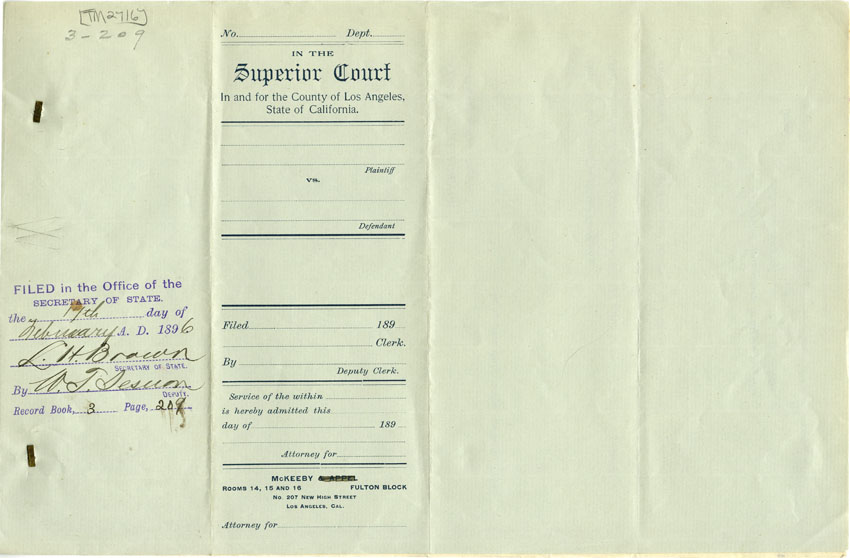 [TM2716]
3-209
FILED in the Office of the
SECRETARY OF STATE.
the 17th day of
February A. D. 1896
L. H. Brown
SECRETARY OF STATE.
By W. T.
DEPUTY.
Record Book, 3 Page, 209
No. Dept.
IN THE
Superior Court
In and for the County of Los Angeles,
State of California.
Plaintiff
vs.
Defendant
Filed 189
Clerk.
By
Deputy Clerk.
Service of the within
is hereby admitted this
day of 189
Attorney for
MCKEEBY & APPEL
ROOMS 14, 15 AND 16 FULTON BLOCK
No. 207 NEW HIGH STREET
LOS ANGELES, CAL.
Attorney for